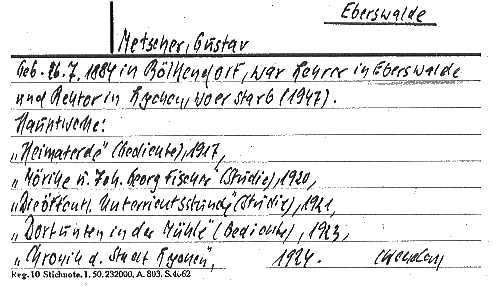 Eberswalde
Metscher, Gustav
Geb. 26.7.1884 in Bölkendorf, war Lehrer in Eberswalde
und Rektor in Lychen, wo er starb (1947).
Hauptwerke:
„Heimaterde" (Gedichte), 1917,
„Mörike u. Joh. Georg Fischer" (Studie), 1920,
„Die öffentl. Unterrichtsstunde" (Studie), 1921,
„Dort unten in der Mühle" (Gedichte), 1923,
„Chronik d. Stadt Lychen", 1924.
Reg. 10 Stichnote. 1. 50. 232000. A. 803. S. 4662